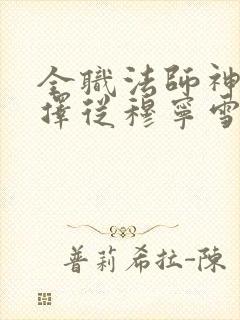 全職法師神
擇從穆寧雪
普莉希拉-陳